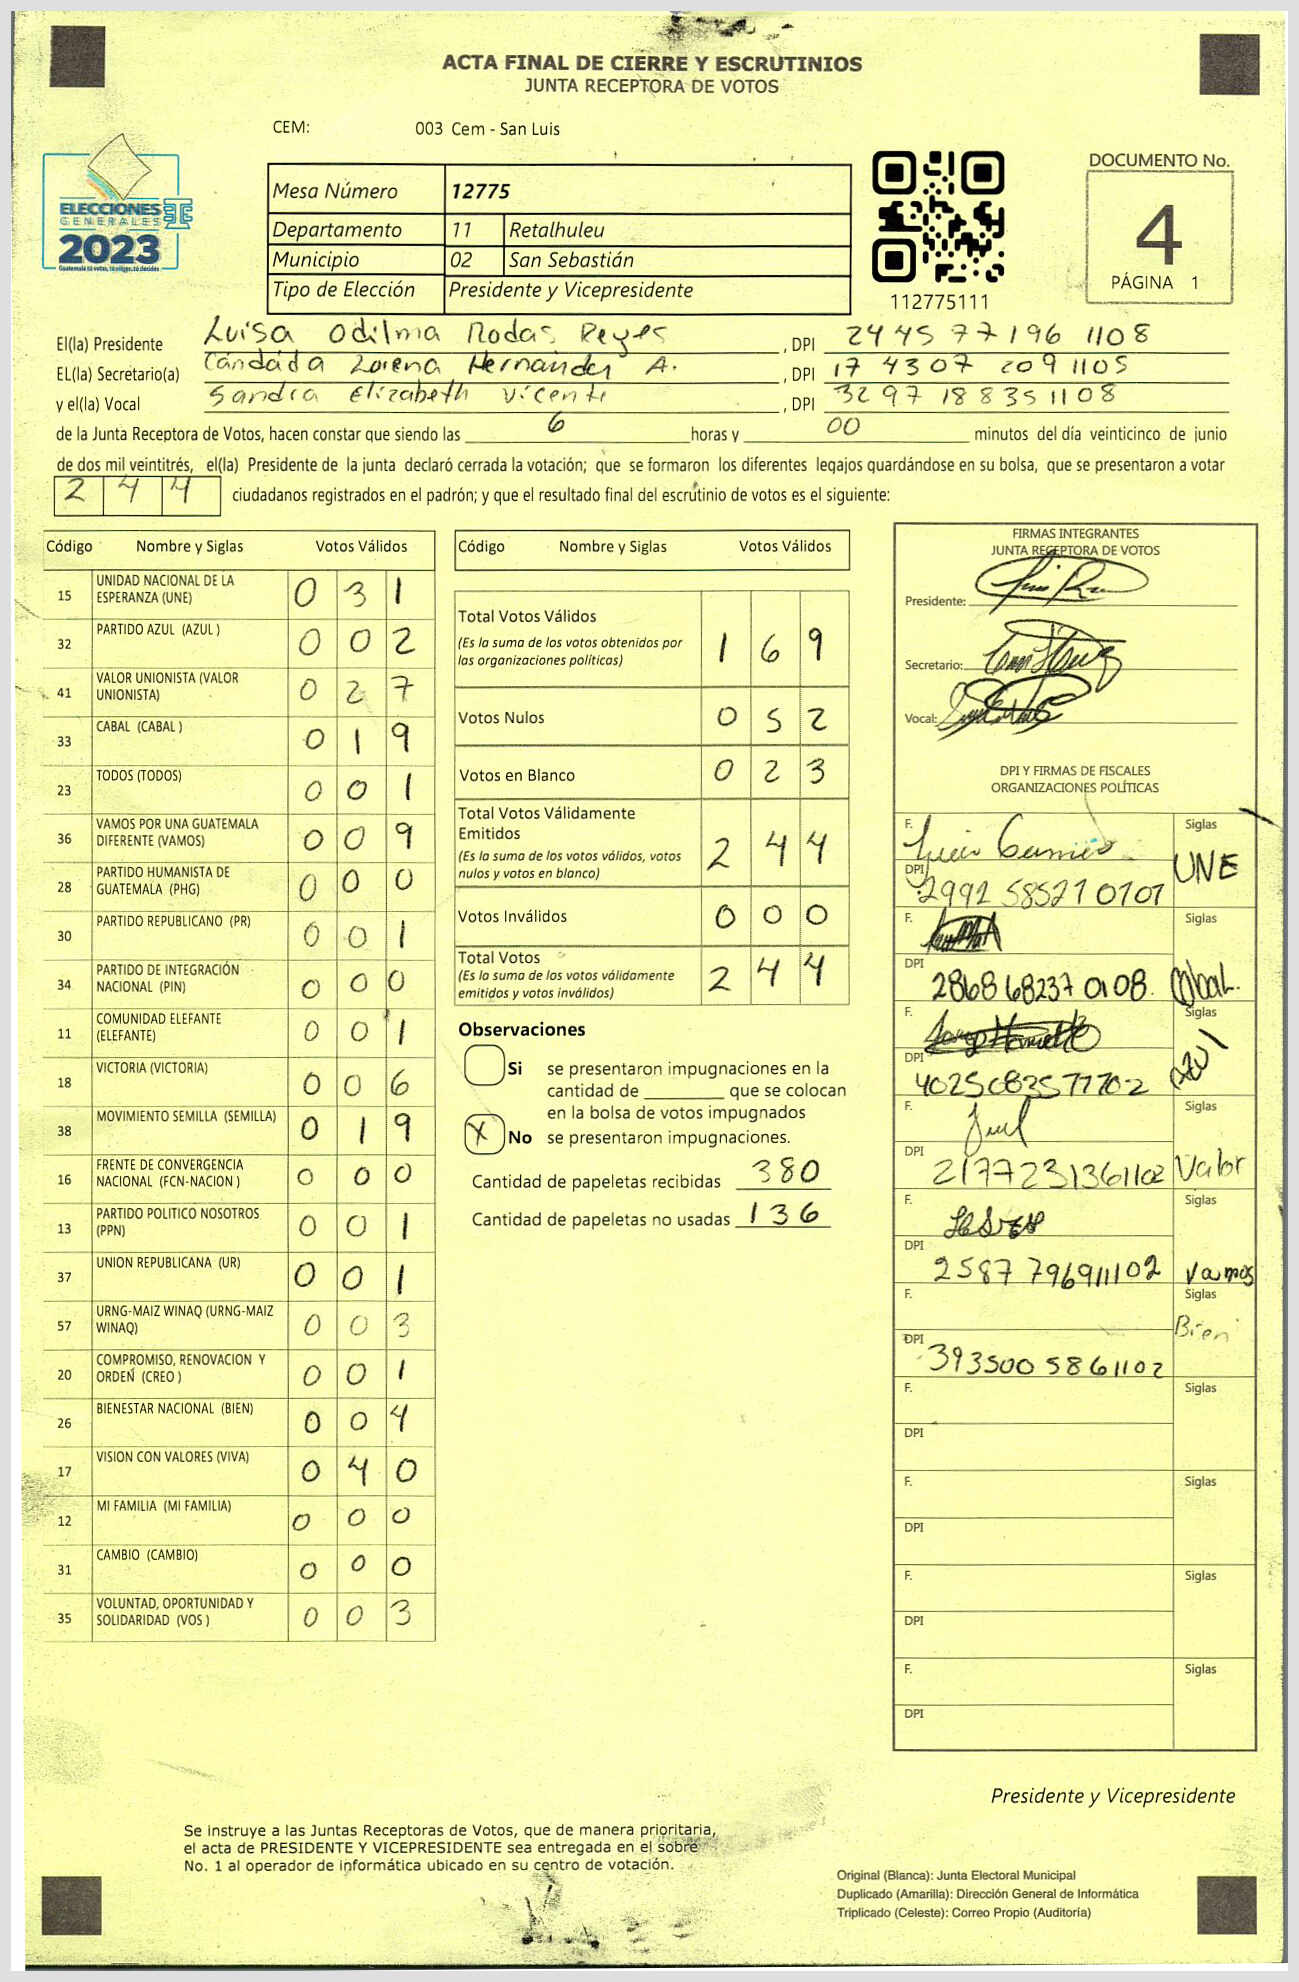 ACTA FINAL DE CIERRE Y ESCRUTINIOS
JUNTA RECEPTORA DE VOTOS
CEM: 003 Cem - San Luis
ELECCIONES
GENERALES
2023
Guatemala tú votas, tú eliges, tú decides
Mesa Número 12775
Departamento 11 Retalhuleu
Municipio 02 San Sebastián
Tipo de Elección Presidente y Vicepresidente
112775111
DOCUMENTO No.
4
PÁGINA 1
El(la) Presidente Luisa Odilma Rodas Reyes , DPI 2445 77196 1108
EL(la) Secretario(a) Candida Lorena Hernández A. , DPI 17 4307 209 1105
y el(la) Vocal Sandra Elizabeth Vicente , DPI 3297 18835 1108
de la Junta Receptora de Votos, hacen constar que siendo las 6 horas y 00 minutos del día veinticinco de junio
de dos mil veintitrés, el(la) Presidente de la junta declaró cerrada la votación; que se formaron los diferentes legajos guardándose en su bolsa, que se presentaron a votar
244 ciudadanos registrados en el padrón; y que el resultado final del escrutinio de votos es el siguiente:
Código Nombre y Siglas Votos Válidos
15 UNIDAD NACIONAL DE LA ESPERANZA (UNE) 0 3 1
32 PARTIDO AZUL (AZUL ) 0 0 2
41 VALOR UNIONISTA (VALOR UNIONISTA) 0 2 7
33 CABAL (CABAL ) 0 1 9
23 TODOS (TODOS) 0 0 1
36 VAMOS POR UNA GUATEMALA DIFERENTE (VAMOS) 0 0 9
28 PARTIDO HUMANISTA DE GUATEMALA (PHG) 0 0 0
30 PARTIDO REPUBLICANO (PR) 0 0 1
34 PARTIDO DE INTEGRACIÓN NACIONAL (PIN) 0 0 0
11 COMUNIDAD ELEFANTE (ELEFANTE) 0 0 1
18 VICTORIA (VICTORIA) 0 0 6
38 MOVIMIENTO SEMILLA (SEMILLA) 0 1 9
16 FRENTE DE CONVERGENCIA NACIONAL (FCN-NACION ) 0 0 0
13 PARTIDO POLITICO NOSOTROS (PPN) 0 0 1
37 UNION REPUBLICANA (UR) 0 0 1
57 URNG-MAIZ WINAQ (URNG-MAIZ WINAQ) 0 0 3
20 COMPROMISO, RENOVACION Y ORDEN (CREO ) 0 0 1
26 BIENESTAR NACIONAL (BIEN) 0 0 4
17 VISION CON VALORES (VIVA) 0 4 0
12 MI FAMILIA (MI FAMILIA) 0 0 0
31 CAMBIO (CAMBIO) 0 0 0
35 VOLUNTAD, OPORTUNIDAD Y SOLIDARIDAD (VOS ) 0 0 3
Código Nombre y Siglas Votos Válidos
Total Votos Válidos 1 6 9
(Es la suma de los votos obtenidos por
las organizaciones políticas)
Votos Nulos 0 5 2
Votos en Blanco 0 2 3
Total Votos Válidamente
Emitidos 2 4 4
(Es la suma de los votos válidos, votos
nulos y votos en blanco)
Votos Inválidos 0 0 0
Total Votos 2 4 4
(Es la suma de los votos válidamente
emitidos y votos inválidos)
Observaciones
Si se presentaron impugnaciones en la
cantidad de ________ que se colocan
en la bolsa de votos impugnados
X No se presentaron impugnaciones.
Cantidad de papeletas recibidas 380
Cantidad de papeletas no usadas 136
FIRMAS INTEGRANTES
JUNTA RECEPTORA DE VOTOS
Presidente:
Secretario:
Vocal:
DPI Y FIRMAS DE FISCALES
ORGANIZACIONES POLÍTICAS
F. Siglas UNE
DPI 2992 58527 0101
F. Siglas Cabal.
DPI 2868 68237 0108.
F. Siglas AZUL
DPI 4025083577702
F. Siglas Valor
DPI 2177231361102
F. Siglas Vamos
DPI 2587 796911102
F. Siglas Bien
DPI 3935005861102
F. Siglas
DPI
F. Siglas
DPI
F. Siglas
DPI
F. Siglas
DPI
Presidente y Vicepresidente
Se instruye a las Juntas Receptoras de Votos, que de manera prioritaria,
el acta de PRESIDENTE Y VICEPRESIDENTE sea entregada en el sobre
No. 1 al operador de informática ubicado en su centro de votación.
Original (Blanca): Junta Electoral Municipal
Duplicado (Amarilla): Dirección General de Informática
Triplicado (Celeste): Correo Propio (Auditoría)